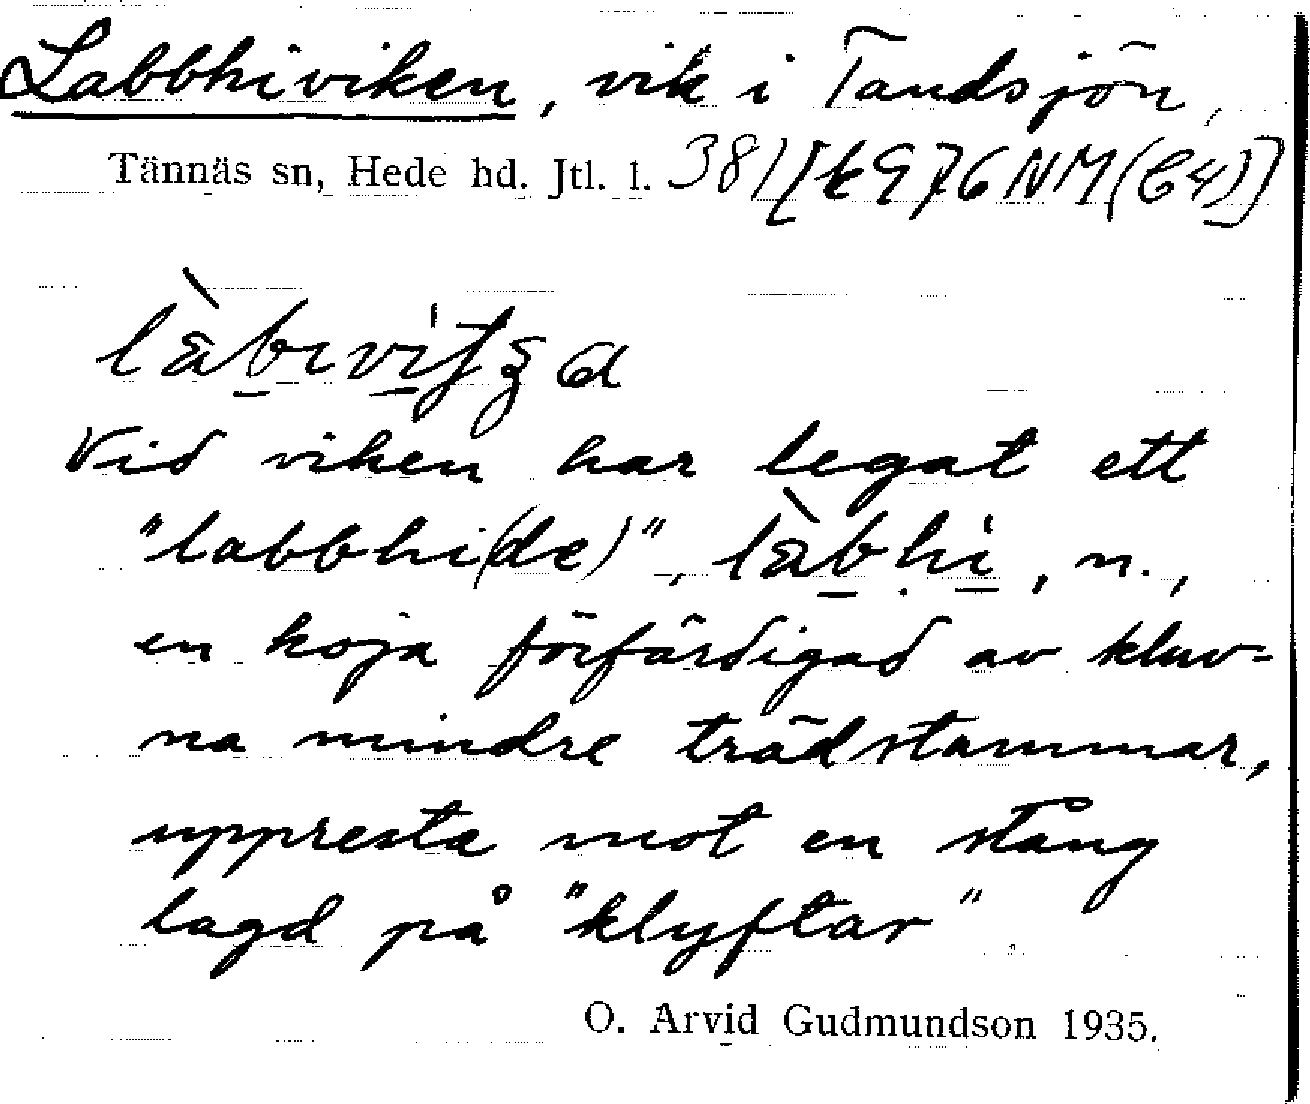 Labbhiviken, vik i Tandsjön,
Tännäs sn, Hede hd. Jtl. l. 381 [k 976 NM (C4)]
Vid viken har legat ett
"labbhi(de)", làbhi, n.,
en koja förfärdigad av kluv-
na mindre trädstammar,
uppresta mot en stång
lagd på "klyftar"
O. Arvid Gudmundson 1935.